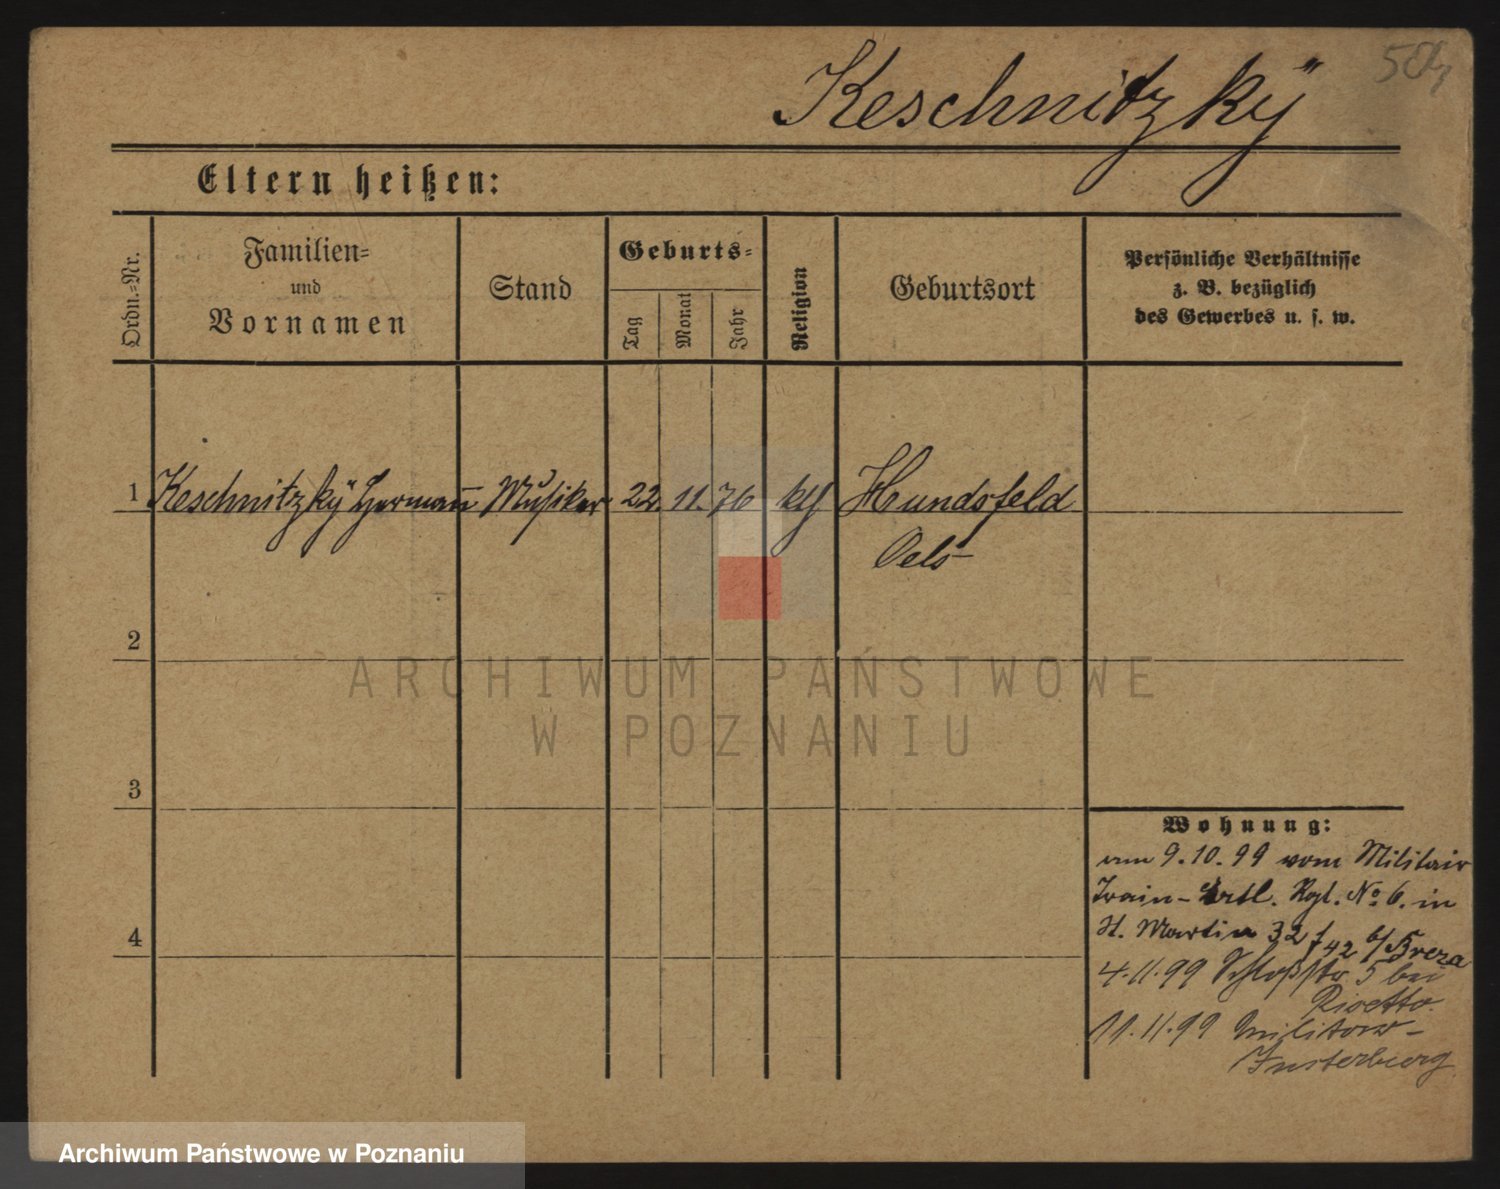 Keschnitzkÿ
Eltern heißen:
Ordn.-Nr.
Familien-
und
Vornamen
Stand
Geburts-
Tag
Monat
Jahr
Religion
Geburtsort
Persönliche Verhältnisse
z. B. bezüglich
des Gewerbes u. s. w.
1 Keschnitzkÿ Hermann Musiker 22. 11. 76 kth Hundsfeld
Oels
2
3
4
Wohnung:
am 9.10.99 vom Militair
Train- Artl. Rgt. No 6. in
St. Martin 32 f 42 b/ Breza
4.11.99 Schloßstr. 5 bei
11.11.99 Militair-
Insterburg
ARCHIWUM PAŃSTWOWE
W POZNANIU
Archiwum Państwowe w Poznaniu